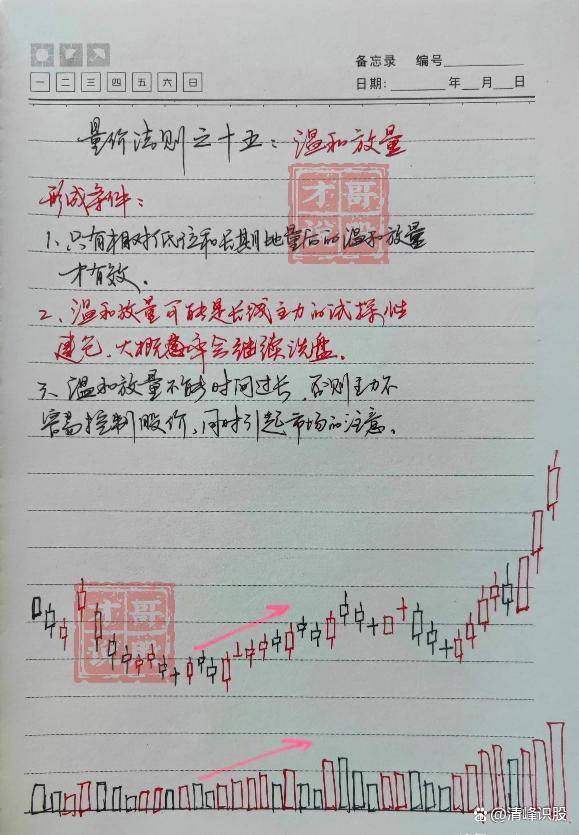 备忘录 编号
一 二 三 四 五 六 日
日期: 年 月 日
量价法则之十五:温和放量
形成条件:
1、只有相对低位和长期地量后的温和放量
才有效.
2、温和放量可能是长线主力的试探性
建仓,大概意味会继续洗盘.
3、温和放量不能时间过长,否则主力不
容易控制股价,同时引起市场的注意.
才哥
说股
才哥
说股
@清峰识股